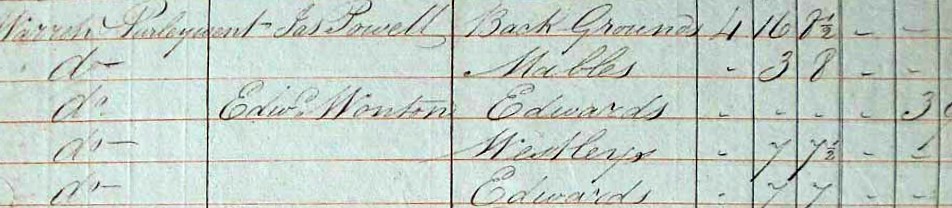 Warren Purleyment Jas Powell Back Grounds 4 16 8½ - -
do Mables - 3 8 - -
do Edwd Wonton Edwards - - - - 3
do Westleys - 7 7½ - 1
do Edwards - 7 7 - -